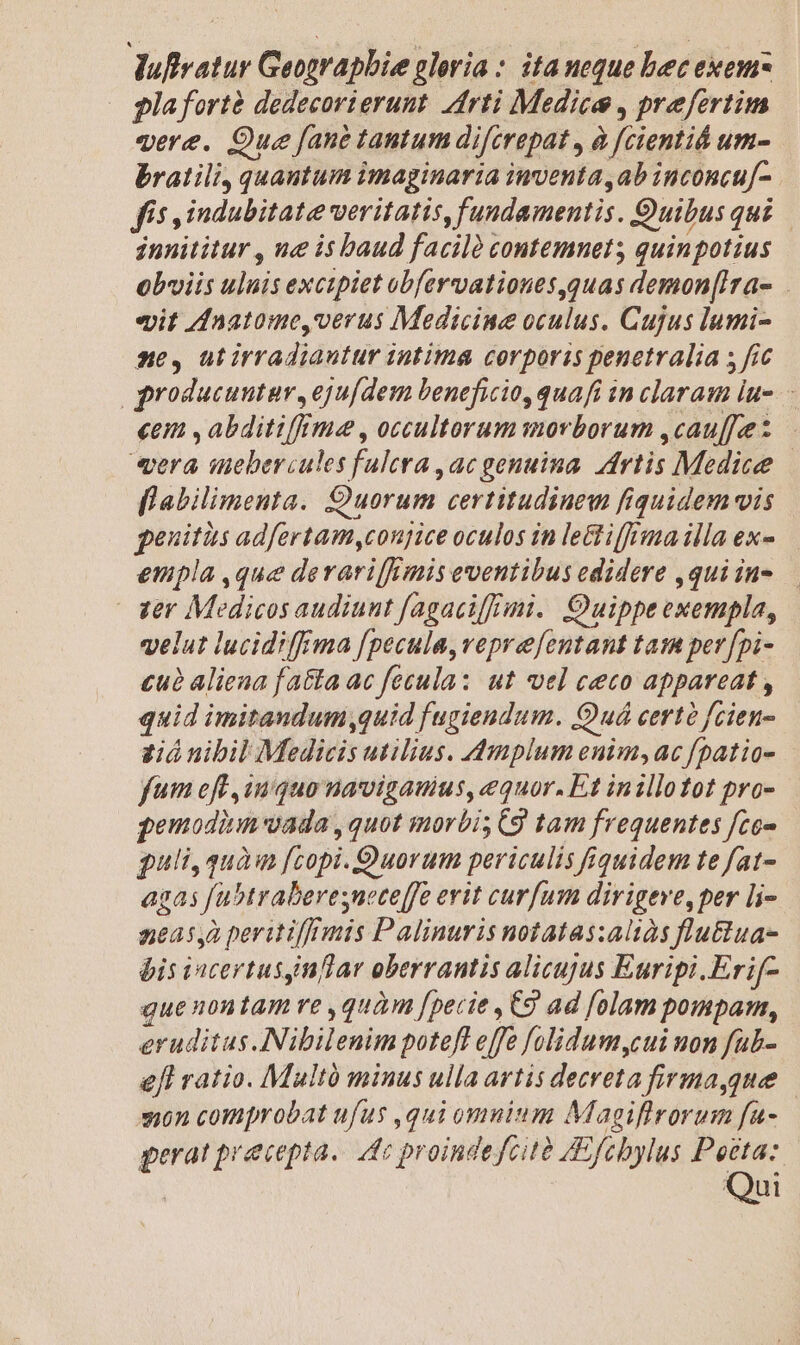 luſtratur Geographiæ gloria : ita neque hæc exem-
pla fortè dedecorierunt Arti Medicæ, præſertim
veræ. Quæ ſanè tantum diſcrepat, à ſcientiâ um-
bratili, quantum imaginaria inventa, ab inconcuſ-
ſis, indubitatæ veritatis, fundamentis. Quibus qui
innititur, næ is haud facilè contemnet; quin potius
obviis ulnis excipiet obſervationes, quas demonſtra-
vit Anatome, verus Medicinæ oculus. Cujus lumi-
ne, ut irradiantur intima corporis penetralia ; ſic
producuntur, ejuſdem beneficio, quaſi in claram lu-
cem, abditiſſimæ, occultorum morborum, cauſſæ:
vera mehercules fulcra, ac genuina Artis Medicæ
ſtabilimenta. Quorum certitudinem ſiquidem vis
penitùs adſertam, conjice oculos in lectiſſima illa ex-
empla, quæ de rariſſimis eventibus edidere, qui in-
ter Medicos audiunt ſagaciſſimi. Quippe exempla,
velut lucidiſſima ſpecula, repræſentant tam perſpi-
cuè aliena facta ac ſecula: ut vel cæco appareat,
quid imitandum, quid fugiendum. Quâ certè ſcien-
tiâ nihil Medicis utilius. Amplum enim, ac ſpatio-
ſum eſt, in quo navigamus, æquor. Et in illo tot pro-
pemodùm vada, quot morbi; & tam frequentes ſco-
puli, quàm ſcopi. Quorum periculis ſiquidem te ſat-
agas ſubtrahere; neceſſe erit curſum dirigere, per li-
neas, à peritiſſimis Palinuris notatas: aliàs fluctua-
bis incertus, inſtar oberrantis alicujus Euripi. Eriſ-
que non tam re, quàm ſpecie, & ad ſolam pompam,
eruditus. Nihil enim poteſt eſſe ſolidum, cui non ſub-
eſt ratio. Multò minus ulla artis decreta firma, quæ
non comprobat uſus, qui omnium Magiſtrorum ſu-
perat præcepta. Ac proinde ſcitè Æſchylus Poëta:
Qui